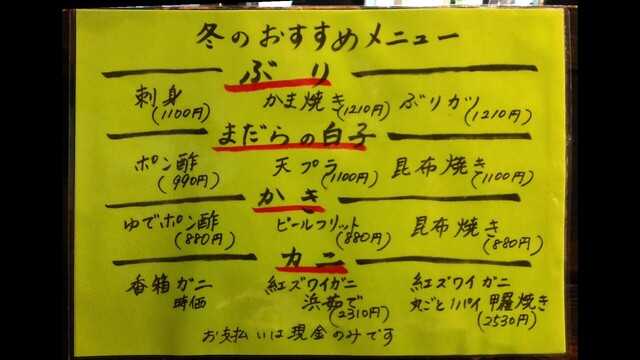 冬のおすすめメニュー
ぶり
刺身 かま焼き ぶりカツ
(1100円) (1210円) (1210円)
まだらの白子
ポン酢 天プラ 昆布焼き
(990円) (1100円) (1100円)
かき
ゆでポン酢 ビールフリット 昆布焼き
(880円) (880円) (880円)
カニ
香箱ガニ 紅ズワイガニ 紅ズワイガニ
時価 浜茹で 丸ごと1パイ甲羅焼き
(2310円) (2530円)
お支払いは現金のみです